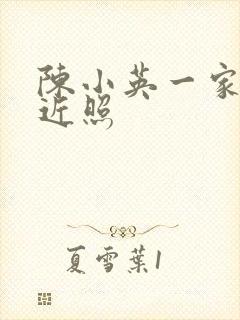 陳小英一家
近照
夏雪葉1